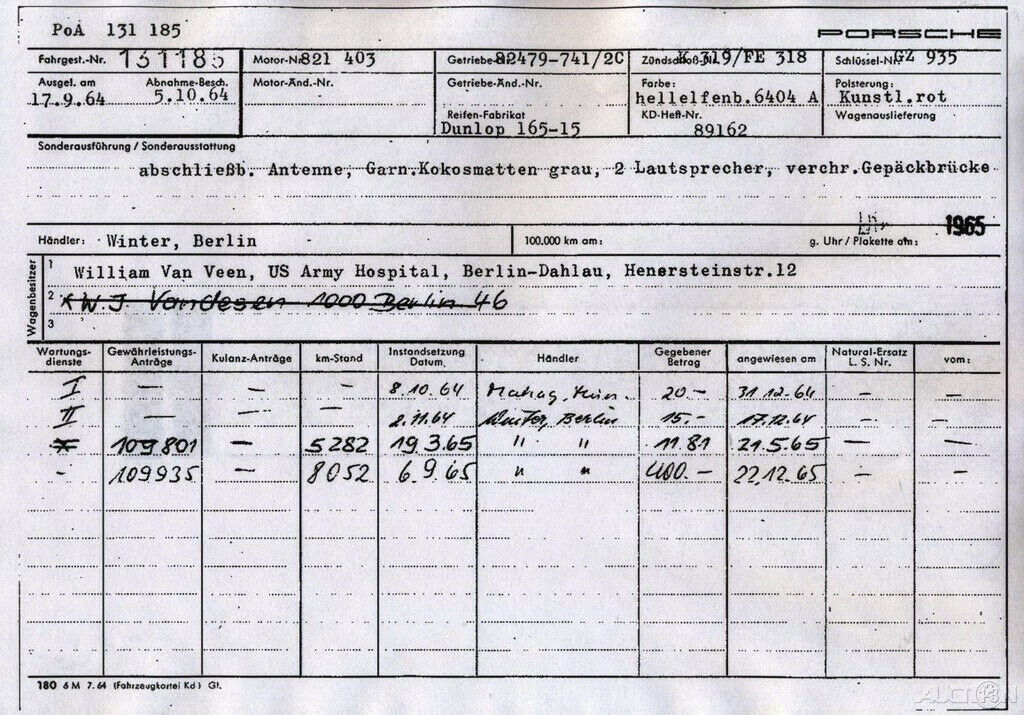 PoA 131 185
PORSCHE
Fahrgest.-Nr. 131185
Motor-Nr. 821 403
Getriebe- 82479-741/2C
Zündschloß-Nr. K 319/FE 318
Schlüssel-Nr. GZ 935
Ausgel. am 17.9.64
Abnahme-Besch. 5.10.64
Motor-Änd.-Nr.
Getriebe-Änd.-Nr.
Farbe: hellelfenb.6404 A
Polsterung: Kunstl.rot
Reifen-Fabrikat Dunlop 165-15
KD-Heft-Nr. 89162
Wagenauslieferung
Sonderausführung / Sonderausstattung
abschließb. Antenne, Garn.Kokosmatten grau, 2 Lautsprecher, verchr.Gepäckbrücke
Händler: Winter, Berlin
100.000 km am:
g. Uhr / Plakette am: 1965
Wagenbesitzer
1 William Van Veen, US Army Hospital, Berlin-Dahlau, Henersteinstr.12
2 W.J. Vandesen 1000 Berlin 46
3
Wartungs-dienste Gewährleistungs-Anträge Kulanz-Anträge km-Stand Instandsetzung Datum Händler Gegebener Betrag angewiesen am Natural-Ersatz L. S. Nr. vom:
I — — — 8.10.64 20.- 31.12.64 — —
II — — — 2.11.64 Winter, Berlin 15.- 17.12.64 — —
109801 — 5282 19.3.65 " " 11.81 21.5.65 — —
- 109935 — 8052 6.9.65 " " 400.- 22.12.65 — —
180 6 M 7. 64 (Fahrzeugkartei Kd) Gt.
AUCTION
13